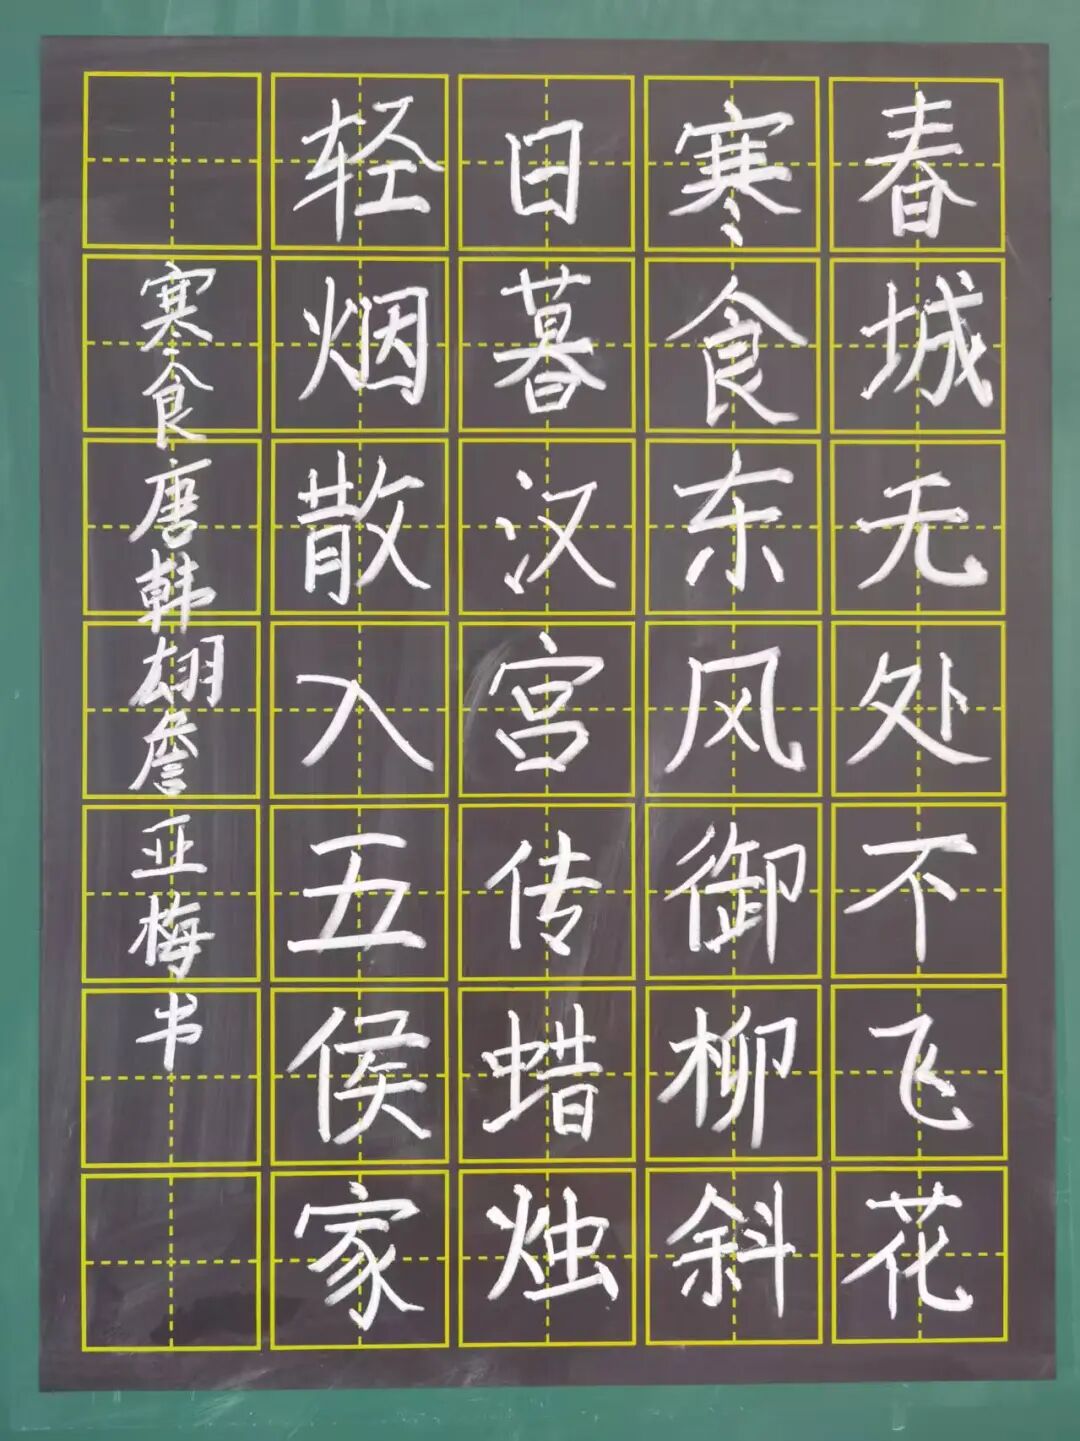 春城无处不飞花
寒食东风御柳斜
日暮汉宫传蜡烛
轻烟散入五侯家
寒食唐韩翃詹亚梅书